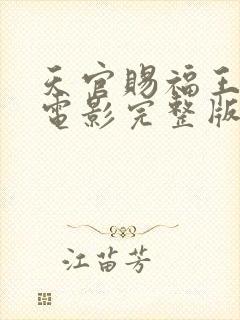 天官赐福王
电影完整版
江苗芳